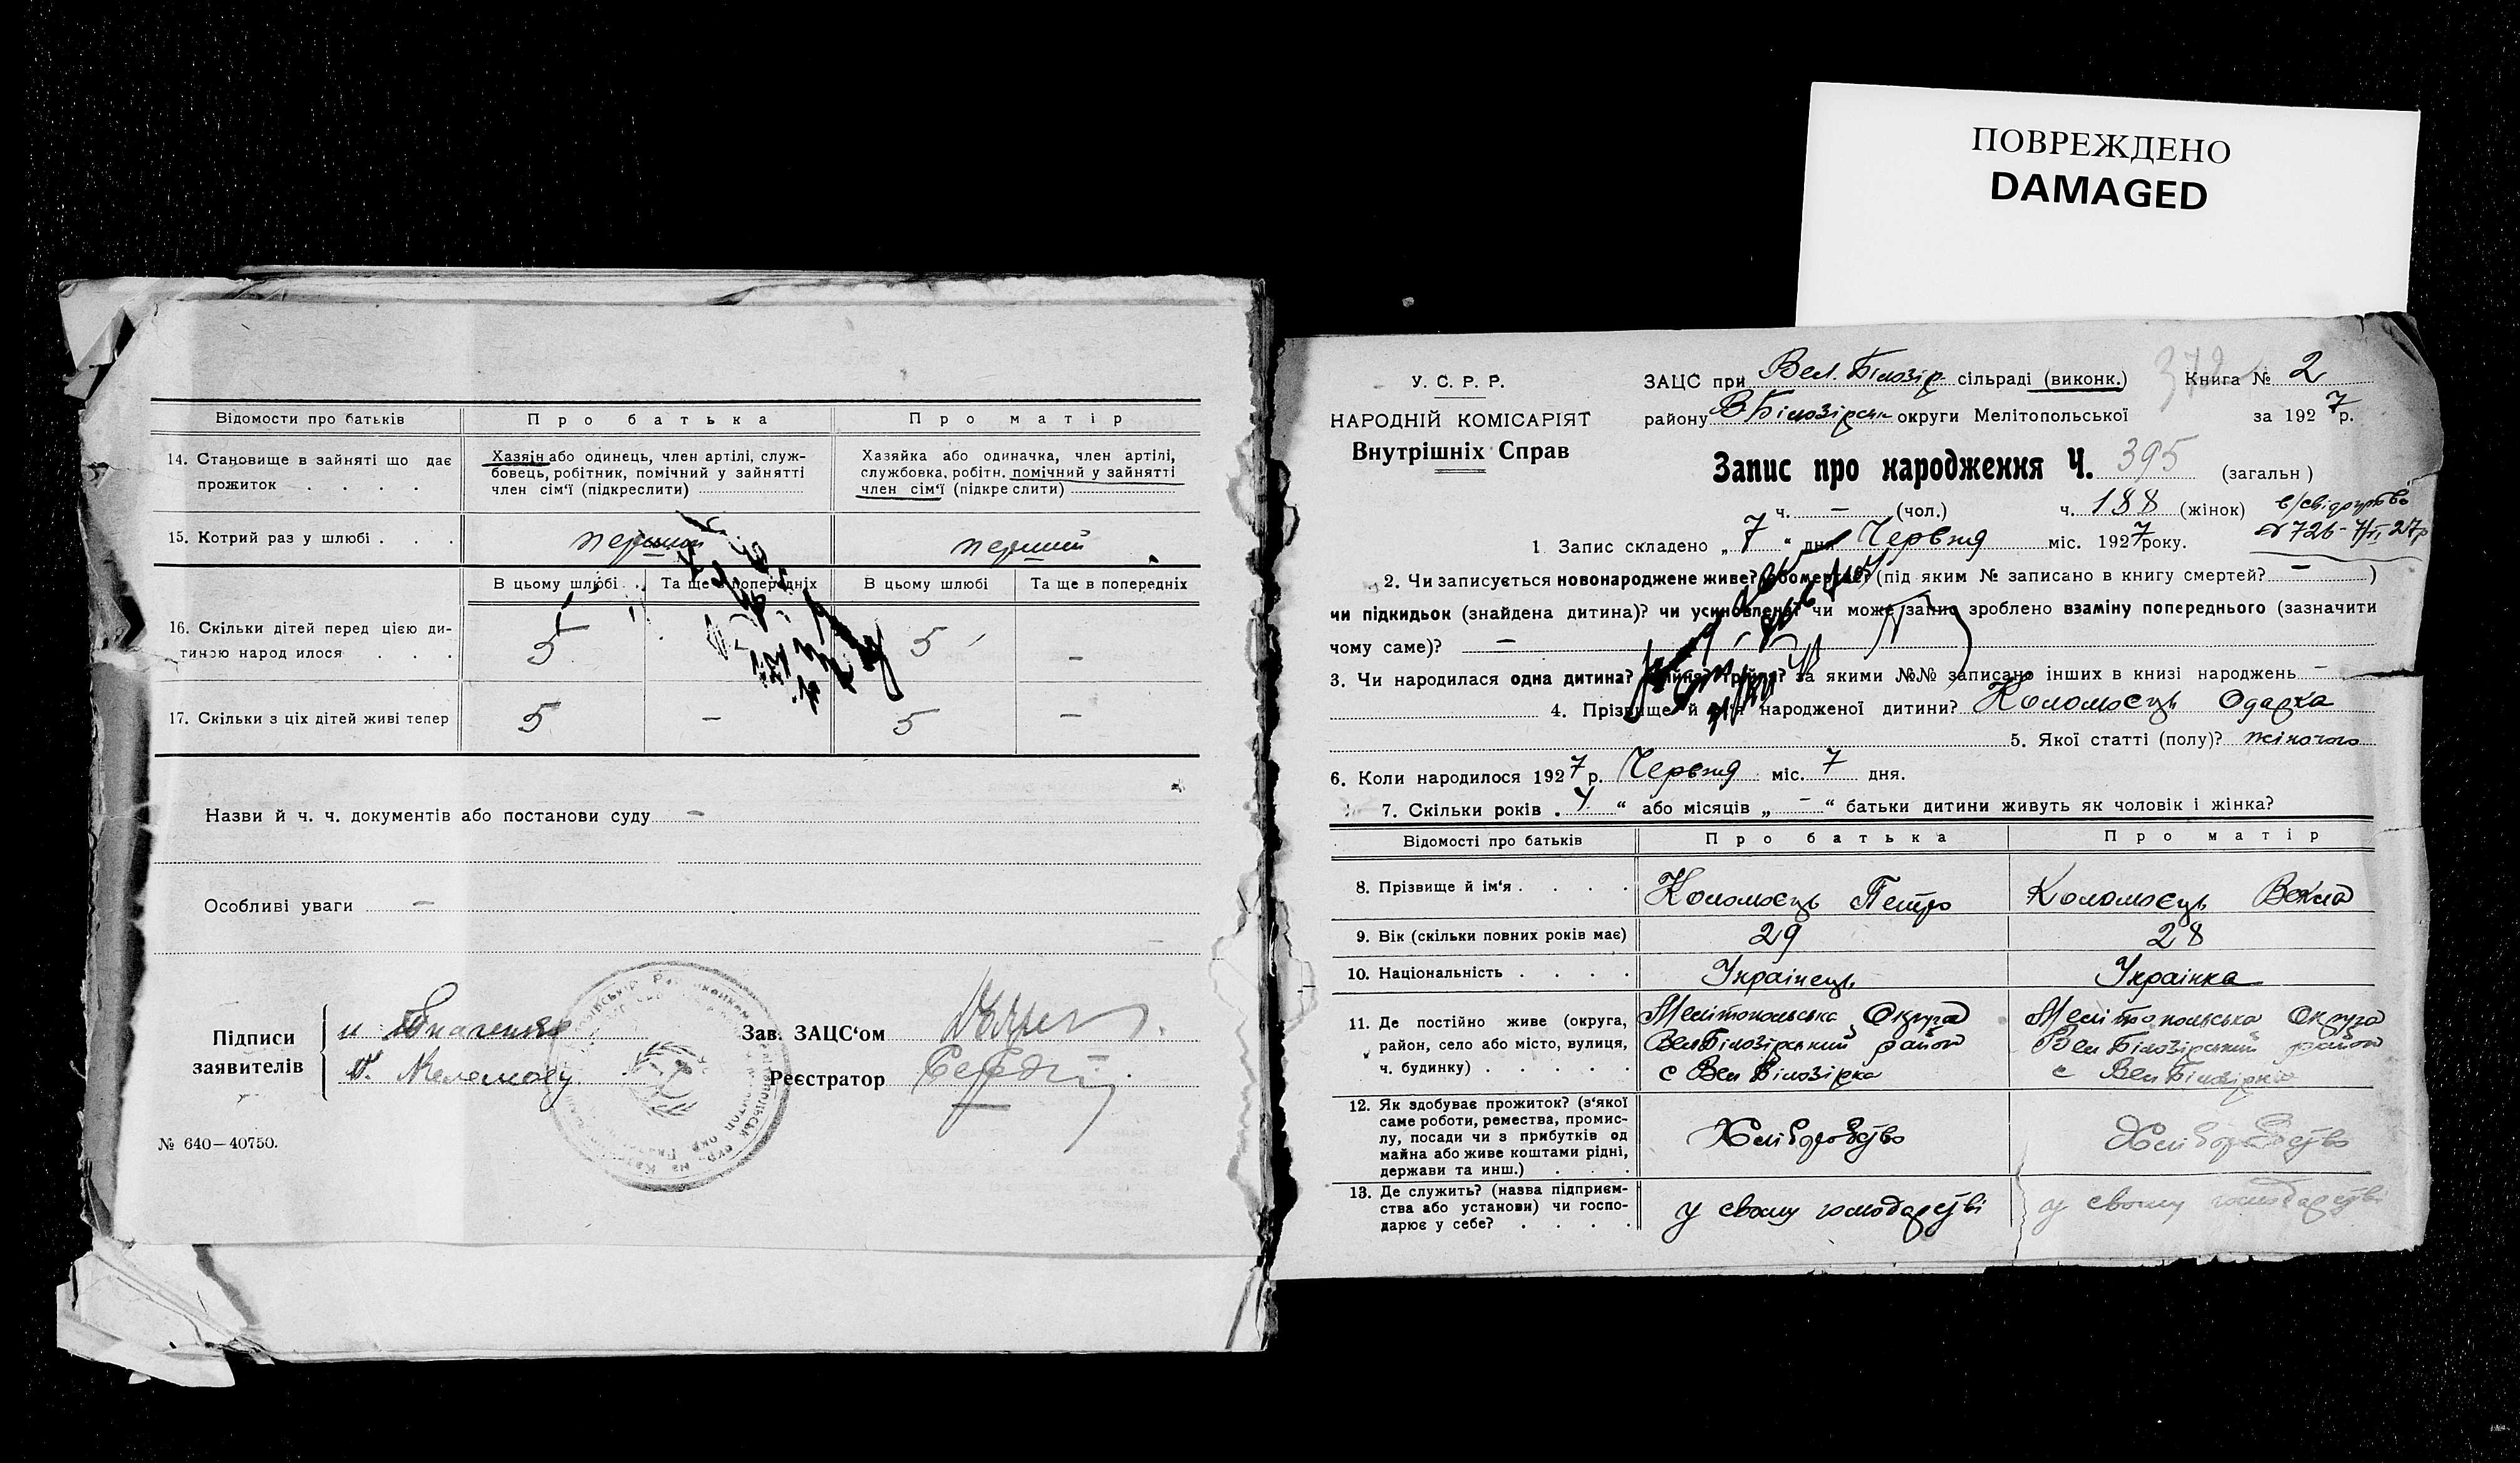 ПОВРЕЖДЕНО
DAMAGED
Відомости про батьків
Про батька
Про матір
14. Становище в зайняті що дає
прожиток . . . .
Хазяін або одинець, член артілі, служ-
бовець, робітник, помічний у зайнятті
член сім'ї (підкреслити)
Хазяйка або одиначка, член артілі,
службовка, робітн. помічний у зайнятті
член сім'ї (підкреслити)
15. Котрий раз у шлюбі . . .
перший
В цьому шлюбі
Та ще в попередніх
В цьому шлюбі
Та ще в попередніх
16. Скільки дітей перед цією ди-
тиною народ илося . . .
5
5
–
17. Скільки з ціх дітей живі тепер
5
–
5
–
Назви й ч. ч. документів або постанови суду –
Особливі уваги –
Підписи
заявителів
Зав. ЗАЦС'ом
Реєстратор
№ 640—40750.
У. С. Р. Р.
НАРОДНІЙ КОМІСАРІЯТ
Внутрішніх Справ
ЗАЦС при Вел. Білозір. сільраді (виконк.)
Книга № 2
району В-Білозірськ округи Мелітопольської
за 1927 р.
Запис про народження Ч. 395 (загальн)
ч. – (чол.)
ч. 188 (жінок)
№ 726
1 Запис складено „7“ дня Червня міс. 1927 року.
2. Чи записується новонароджене живе? обомертве? (під яким № записано в книгу смертей? – )
чи підкидьок (знайдена дитина)? чи усиновлена? чи може запис зроблено взаміну попереднього (зазначити
чому саме)? –
3. Чи народилася одна дитина? двійня? трійня? За якими №№ записано інших в книзі народжень –
4. Прізвище й ім'я народженої дитини? Коломоєць Одарка
5. Якої статті (полу)? жіночого
6. Коли народилося 1927 р. Червня міс. 7 дня.
7. Скільки років „ “ або місяців „ – “ батьки дитини живуть як чоловік і жінка?
Відомості про батьків
Про батька
Про матір
8. Прізвище й ім'я . . . .
Коломоєць Петро
Коломоєць Векла
9. Вік (скільки повних років має)
29
28
10. Національність . . . .
Українець
Українка
11. Де постійно живе (округа,
район, село або місто, вулиця,
ч. будинку) . . . . .
Мелітопольська Округа
Вел Білозірський район
с Вел Білозірка
Мелітопольська Округа
Вел Білозірський район
с Вел Білозірка
12. Як здобуває прожиток? (з'якої
саме роботи, ремества, промис-
лу, посади чи з прибутків од
майна або живе коштами рідні,
держави та инш.) . . .
Хліборобство
Хліборобство
13. Де служить? (назва підприєм-
ства або установи) чи госпо-
дарює у себе? . . . .
у свому господарстві
у свому господарстві